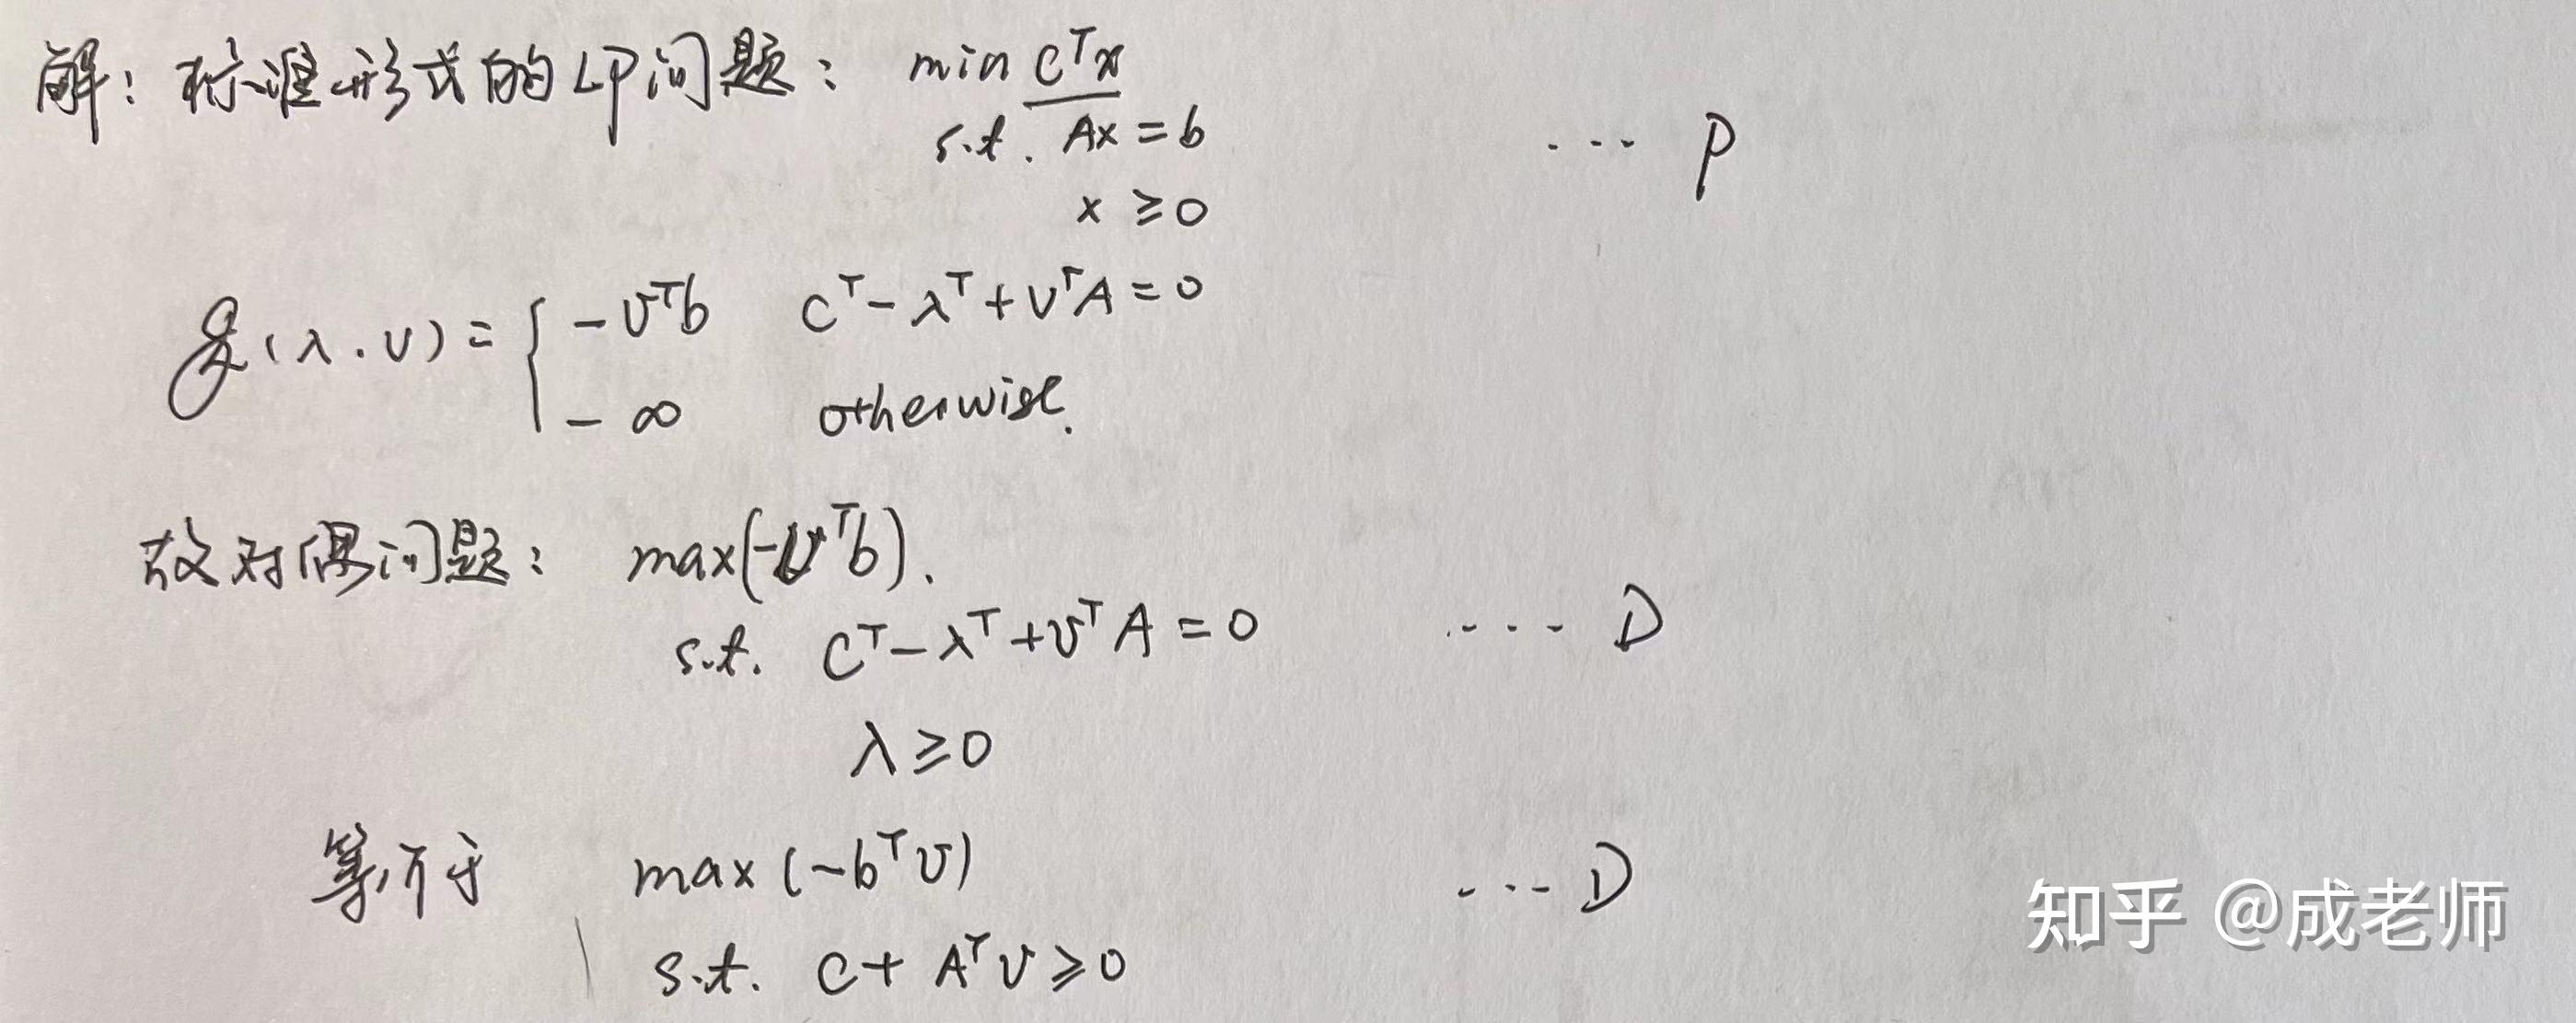 解：标准形式的LP问题： min cᵀx
s.t. Ax = b ... P
x ≥ 0
g(λ.υ) = { -υᵀb cᵀ - λᵀ + υᵀA = 0
-∞ otherwise.
故对偶问题： max(-υᵀb).
s.t. cᵀ - λᵀ + υᵀA = 0 .... D
λ ≥ 0
等价于 max (-bᵀυ) ... D
s.t. c + Aᵀυ ≥ 0
知乎 @成老师